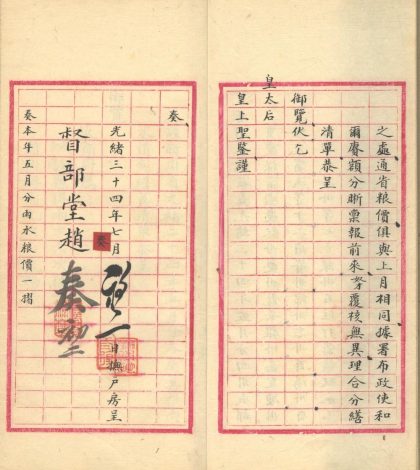 之處通省粮價俱與上月相同據署布政使和
爾賡額分晰稟報前來覆核無異理合分繕
清單恭呈
御覽伏乞
皇太后
皇上聖鑒謹
奏
光緒三十四年七月日撫戶房呈
督部堂趙奏
奏本年五月分雨水粮價一摺